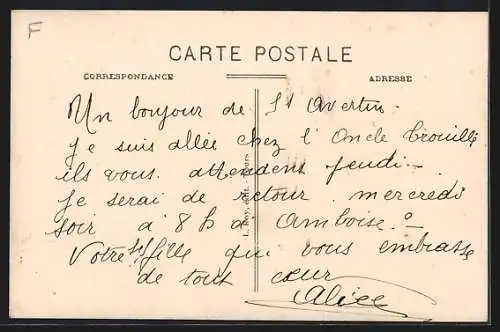 F
CARTE POSTALE
CORRESPONDANCE
ADRESSE
Un bonjour de St Avertin.
je suis allée chez l'Oncle Trouillé
ils vous attendent jeudi. -
Je serai de retour mercredi
soir à 8 h à Amboise. -
Votre fille qui vous embrasse
de tout cœur
Alice